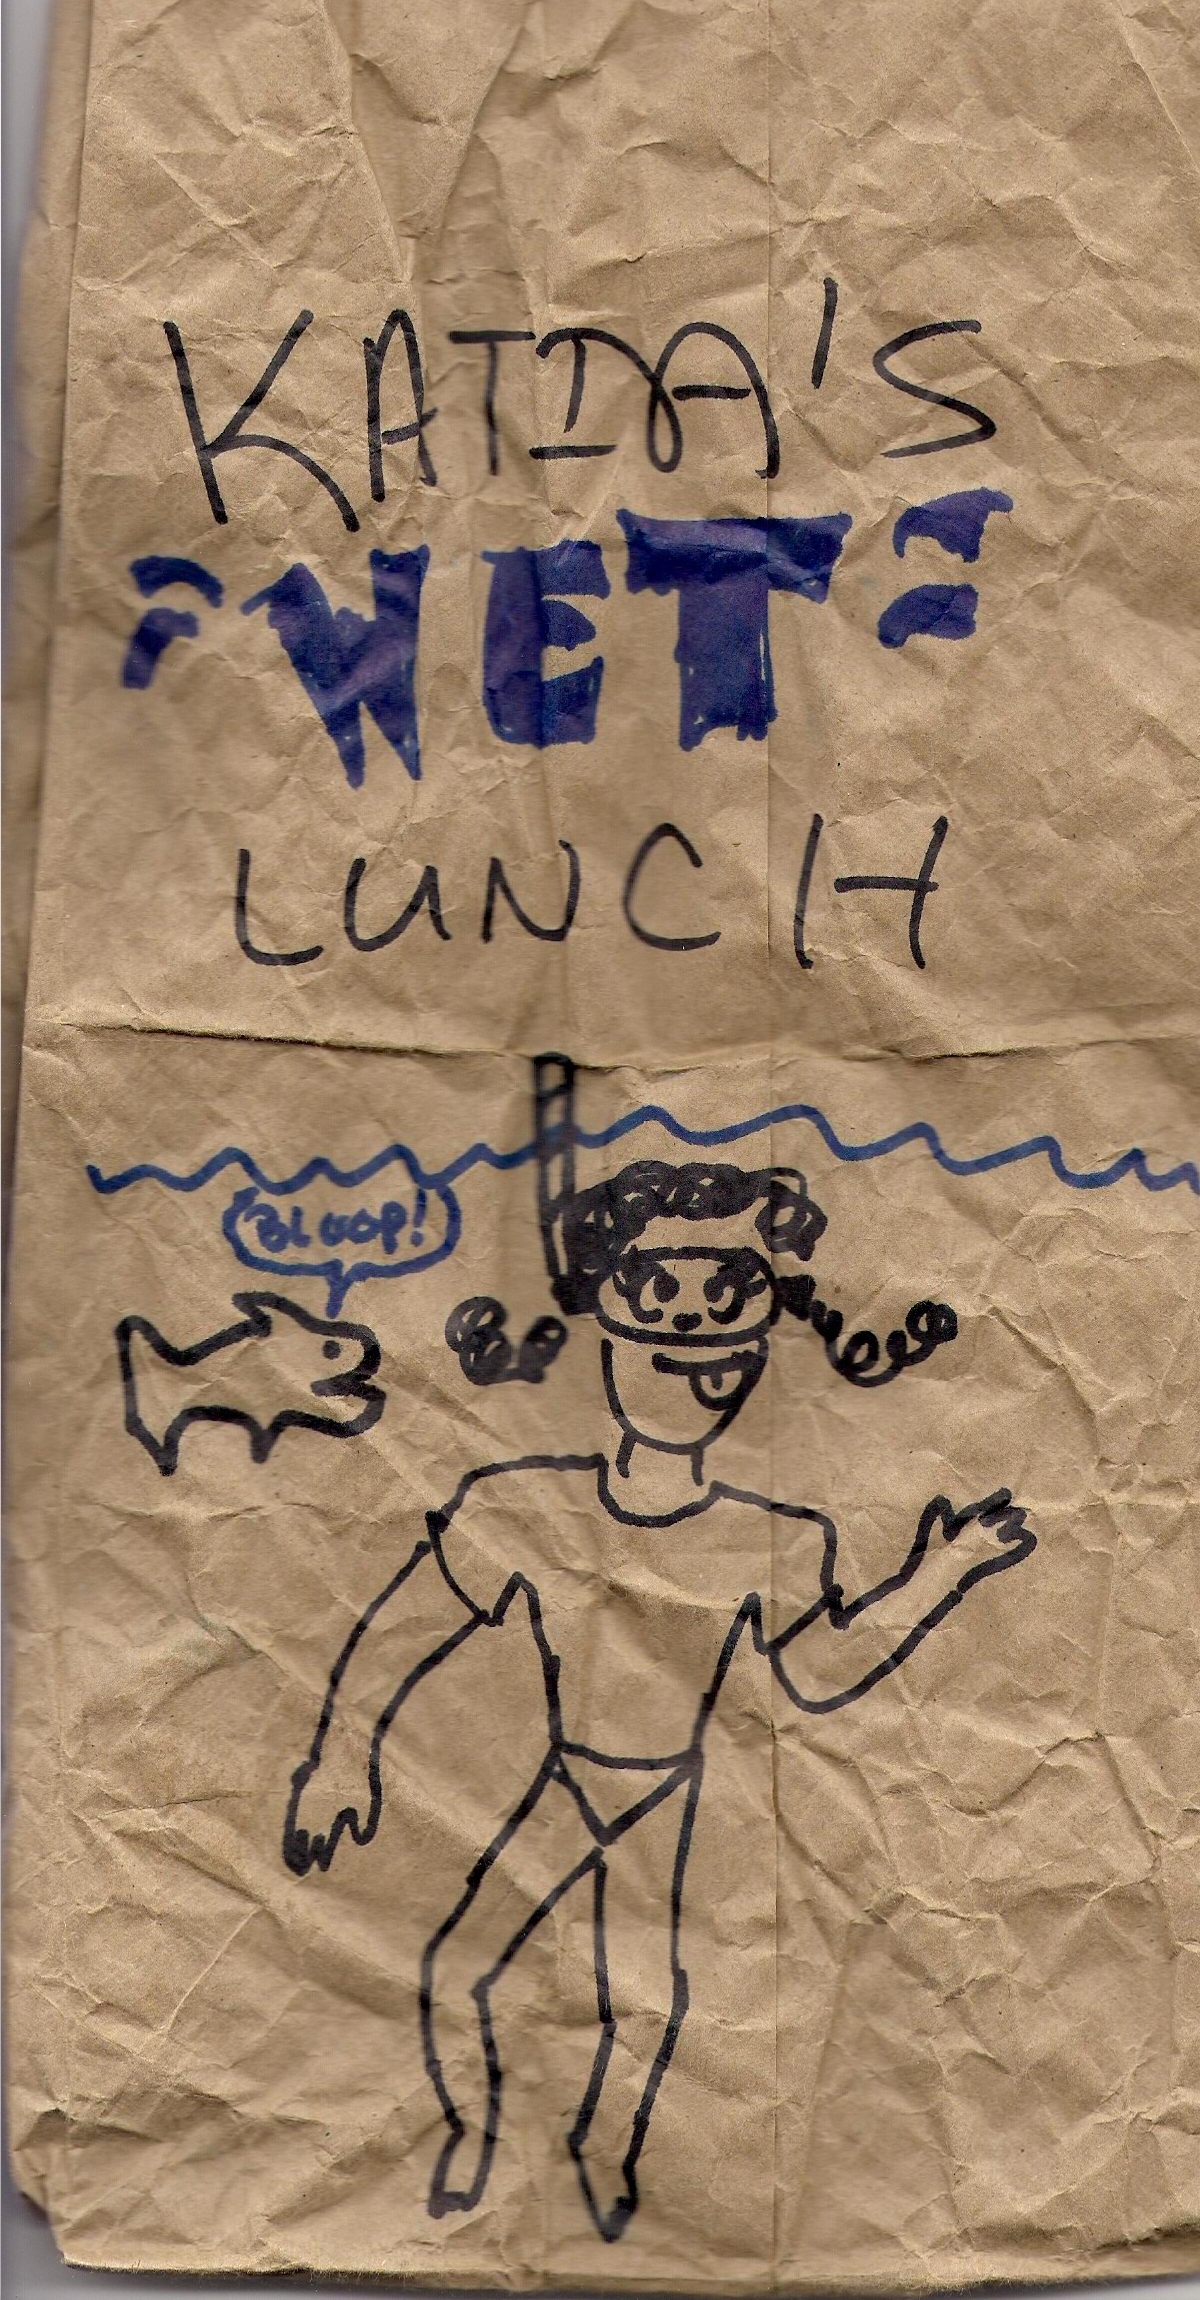 KATIA'S
"WET"
LUNCH
BLOOP!